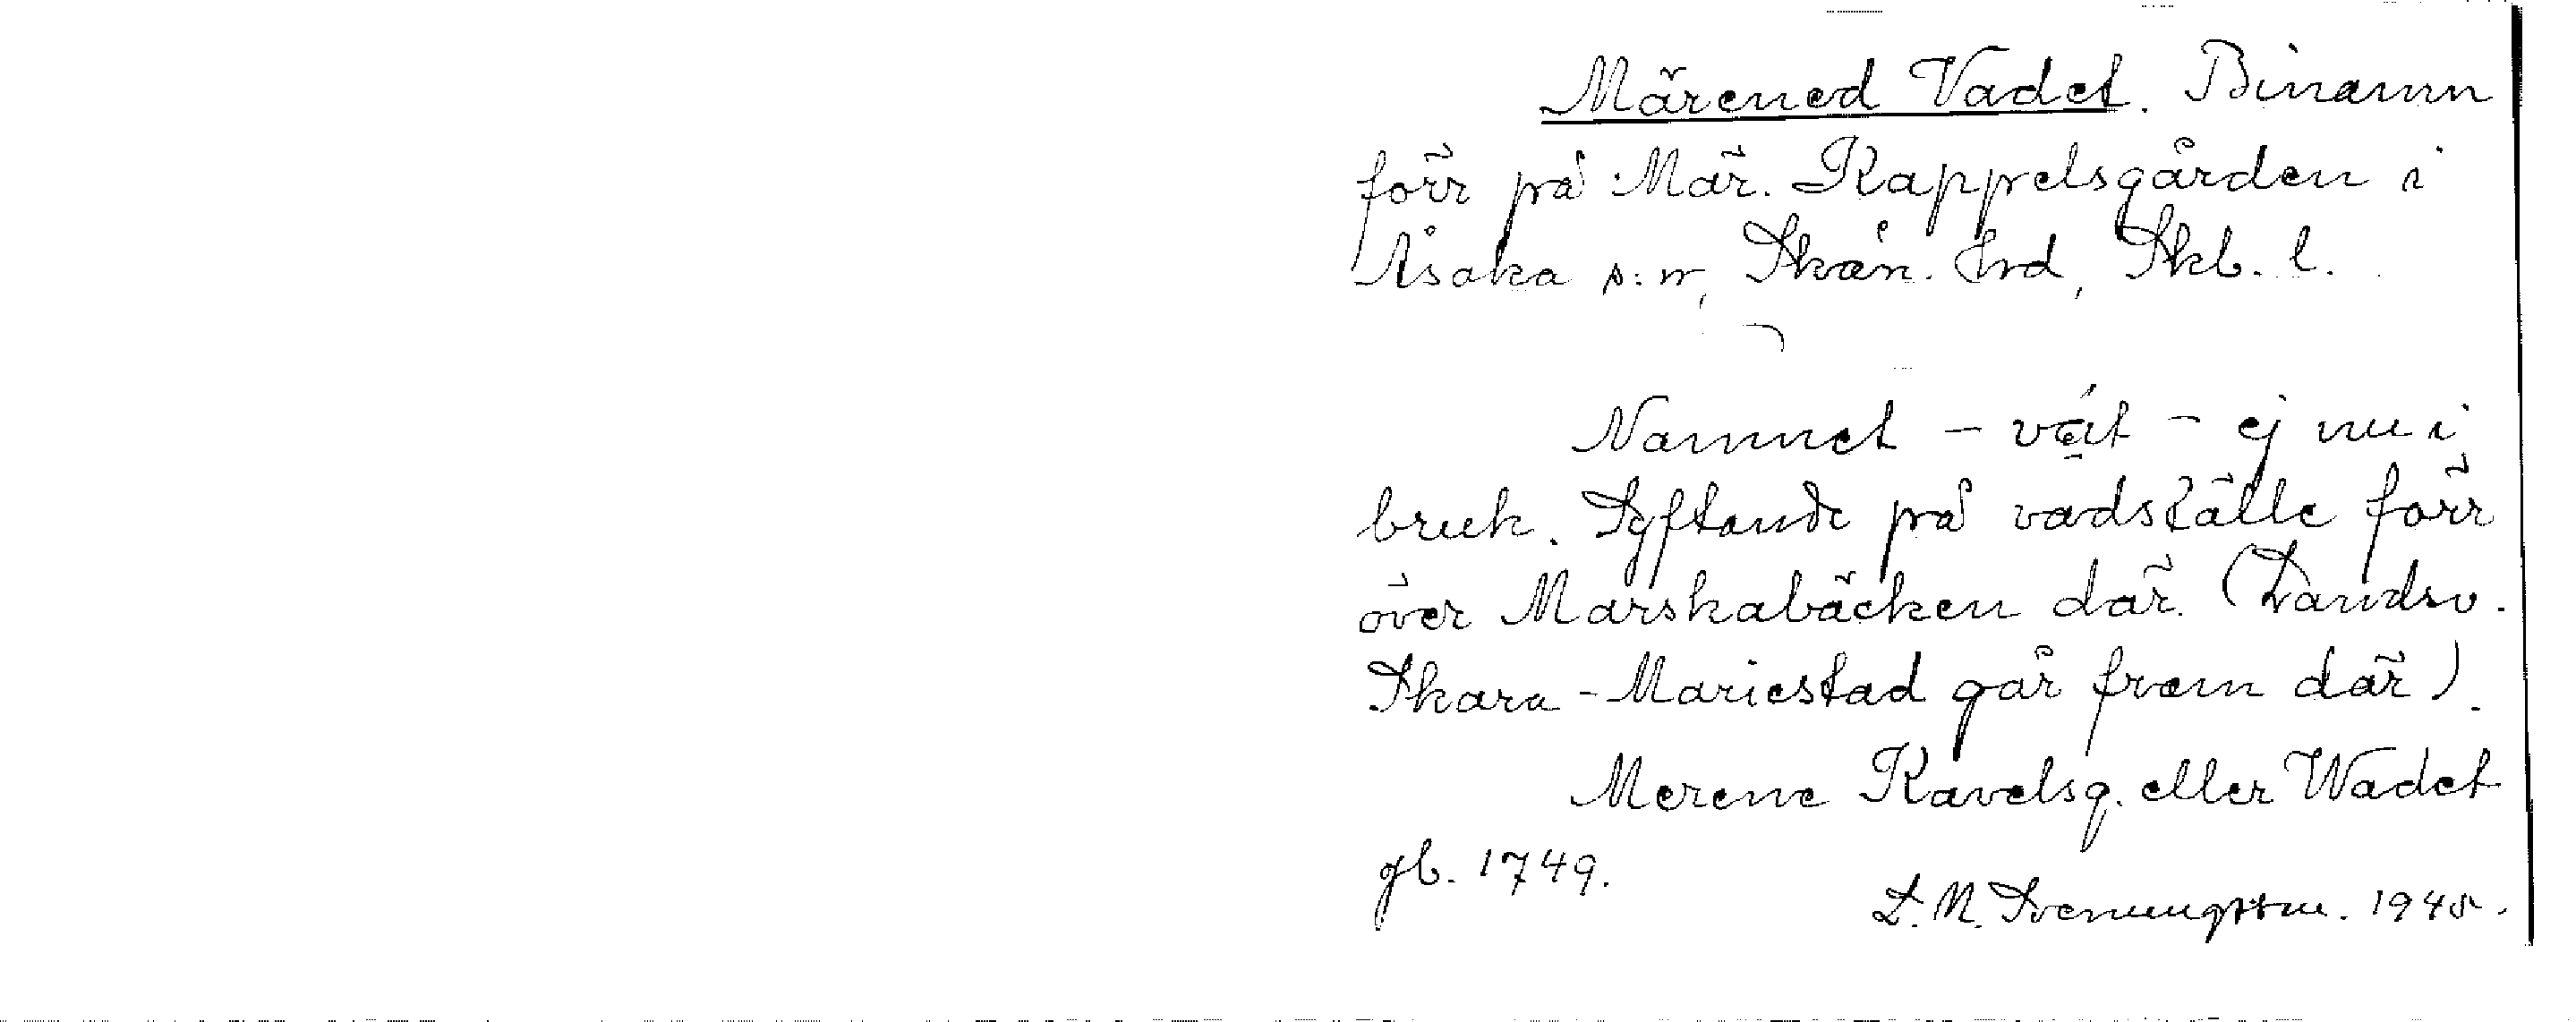 Märened Vadet. Binamn
förr på Mär. Kappelsgården i
Åsaka s:n, Skån. hrd, Skb. l.
Namnet – – ej nu i
bruk. Syftande på vadställe förr
över Marskabäcken där. (Landsv.
Skara - Mariestad går fram där).
Merene Kavelsg. eller Wadet
gb. 1749.
L. N. Svenungsson. 1945.